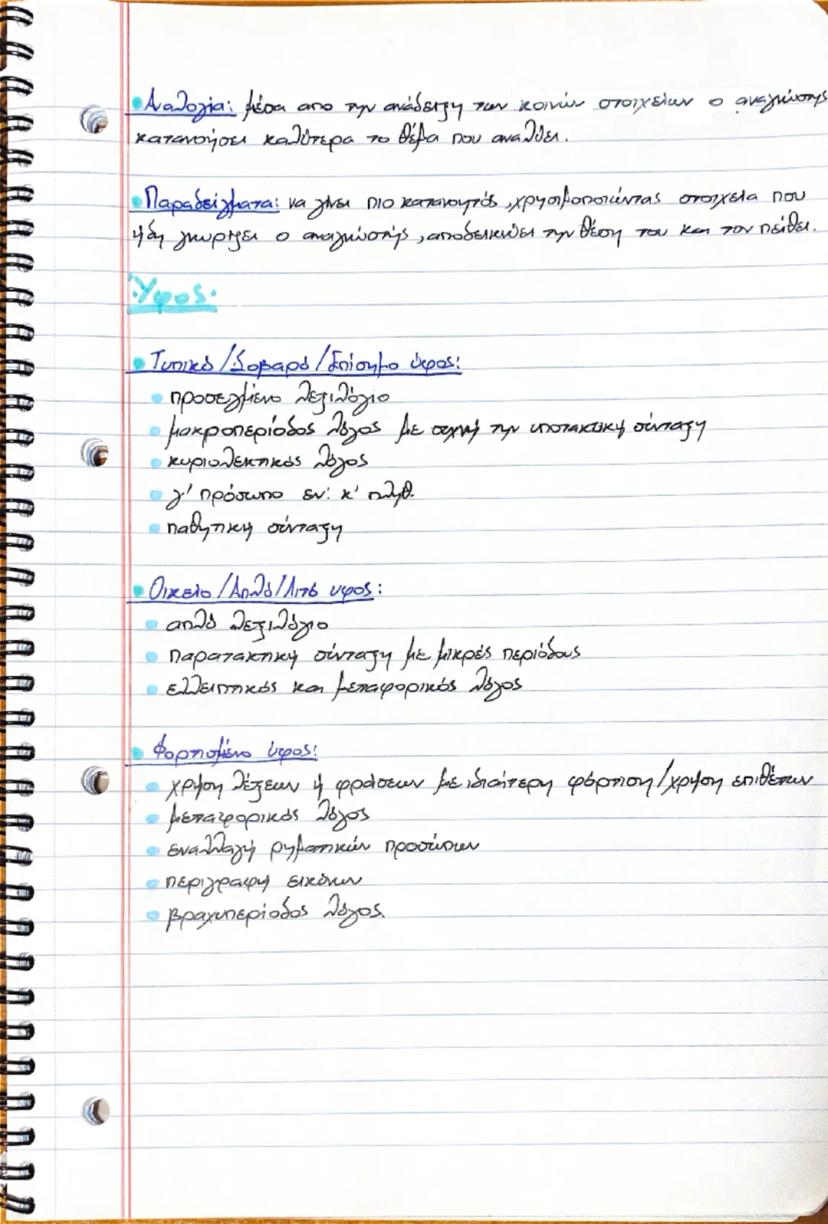 • Αναλογία: μέσα απο την ανάδειξη των κοινών στοιχείων ο αναγνώστης
κατανοήσει καλύτερα το θέμα που αναλύει.
• Παραδείγματα: να γίνει πιο κατανοητός, χρησιμοποιώντας στοιχεία που
ήδη γνωρίζει ο αναγνώστης, αποδεικνύει την θέση του και τον πείθει.
Ύφος:
• Τυπικό/Σοβαρό/Επίσημο ύφος:
• προσεγμένο λεξιλόγιο
• μακροπερίοδος λόγος με συχνή την υποτακτική σύνταξη
• κυριολεκτικός λόγος
• γ' πρόσωπο εν. κ' πληθ.
• παθητική σύνταξη
• Οικείο/Απλό/Λιτό υφος:
• απλό λεξιλόγιο
• παρατακτική σύνταξη με μικρές περιόδους
• ελλειπτικός και μεταφορικός λόγος
• Φορτισμένο ύφος:
• χρήση λέξεων ή φράσεων με ιδιαίτερη φόρτιση/χρήση επιθέτων
• μεταφορικός λόγος
• εναλλαγή ρηματικών προσώπων
• περιγραφή εικόνων
• βραχυπερίοδος λόγος.